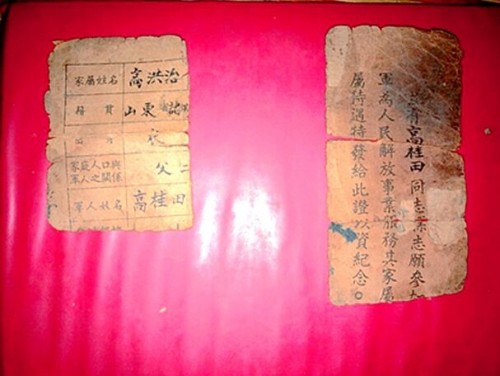 家屬姓名 高洪治
籍貫 山東諸
農
家庭人口與 父
軍人之關係
軍人姓名 高桂田
有高桂田同志業志願參加
軍為人民解放事業服務其家屬
屬待遇特發給此證以資紀念。